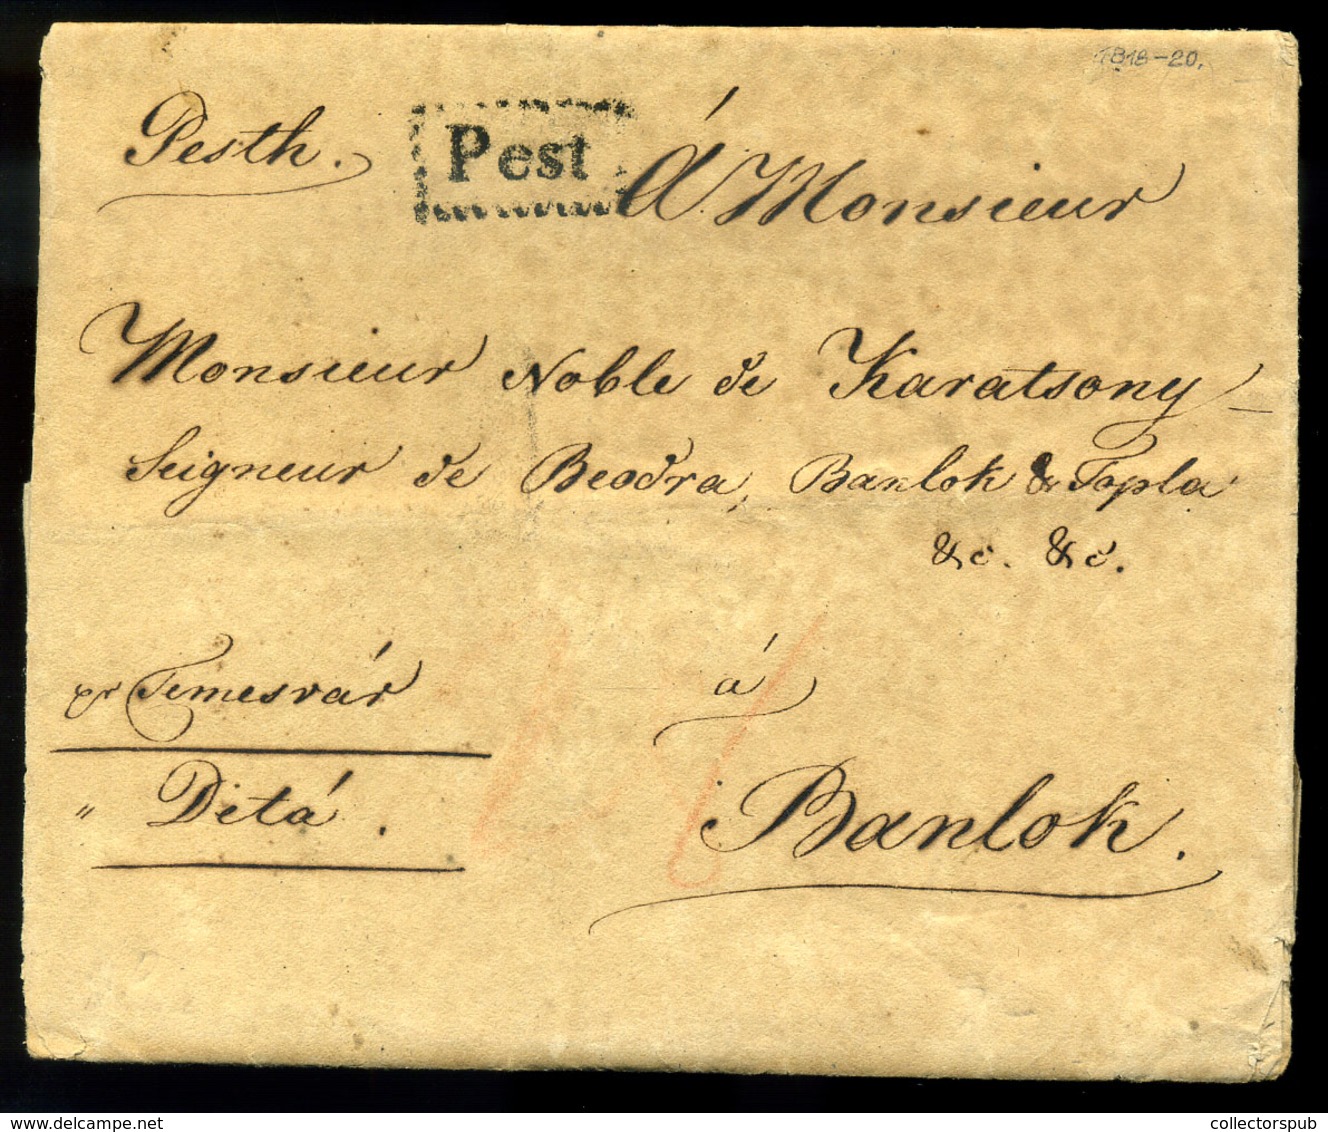 1818-20.
Pesth. Pest Á Monsieur
Monsieur Noble de Karatsony
Seigneur de Beodra, Banlok & Topla
&c. &c.
pr Temesvár
á
" Detá.
Banlok.
collectorspub